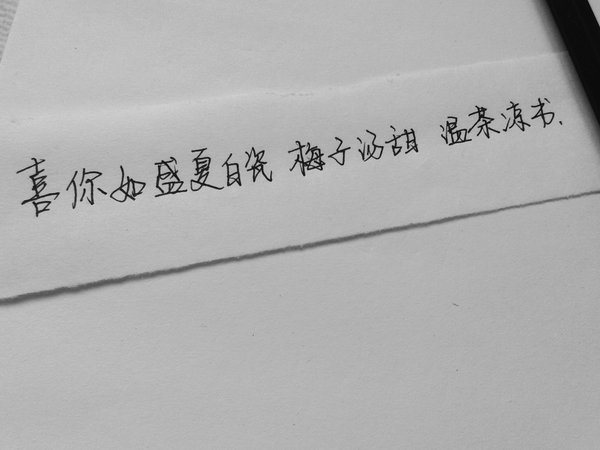 喜你如盛夏白瓷 梅子汤甜 温茶凉书.